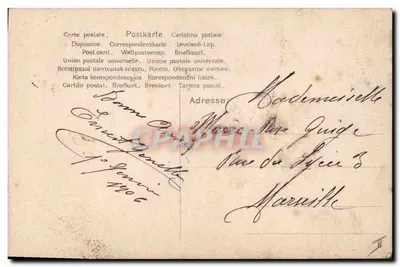 Carte postale. Postkarte. Cartolina postale.
Dopisnice. Correspondenzkarte. Levelező-Lap.
Post card. Weltpostverein. Briefkaart.
Union postale universelle. Unione postale universale.
Всемірный почтовый союзъ. Россія. Открытое письмо.
Karta korespondencyjna. Korespondenční lístek.
Cartão postal. Brefkort. Brevkort. Tarjeta postal.
Adresse
Bonne
1906
Mademoiselle
Marie Rose
Rue du Lycée 3
Marseille